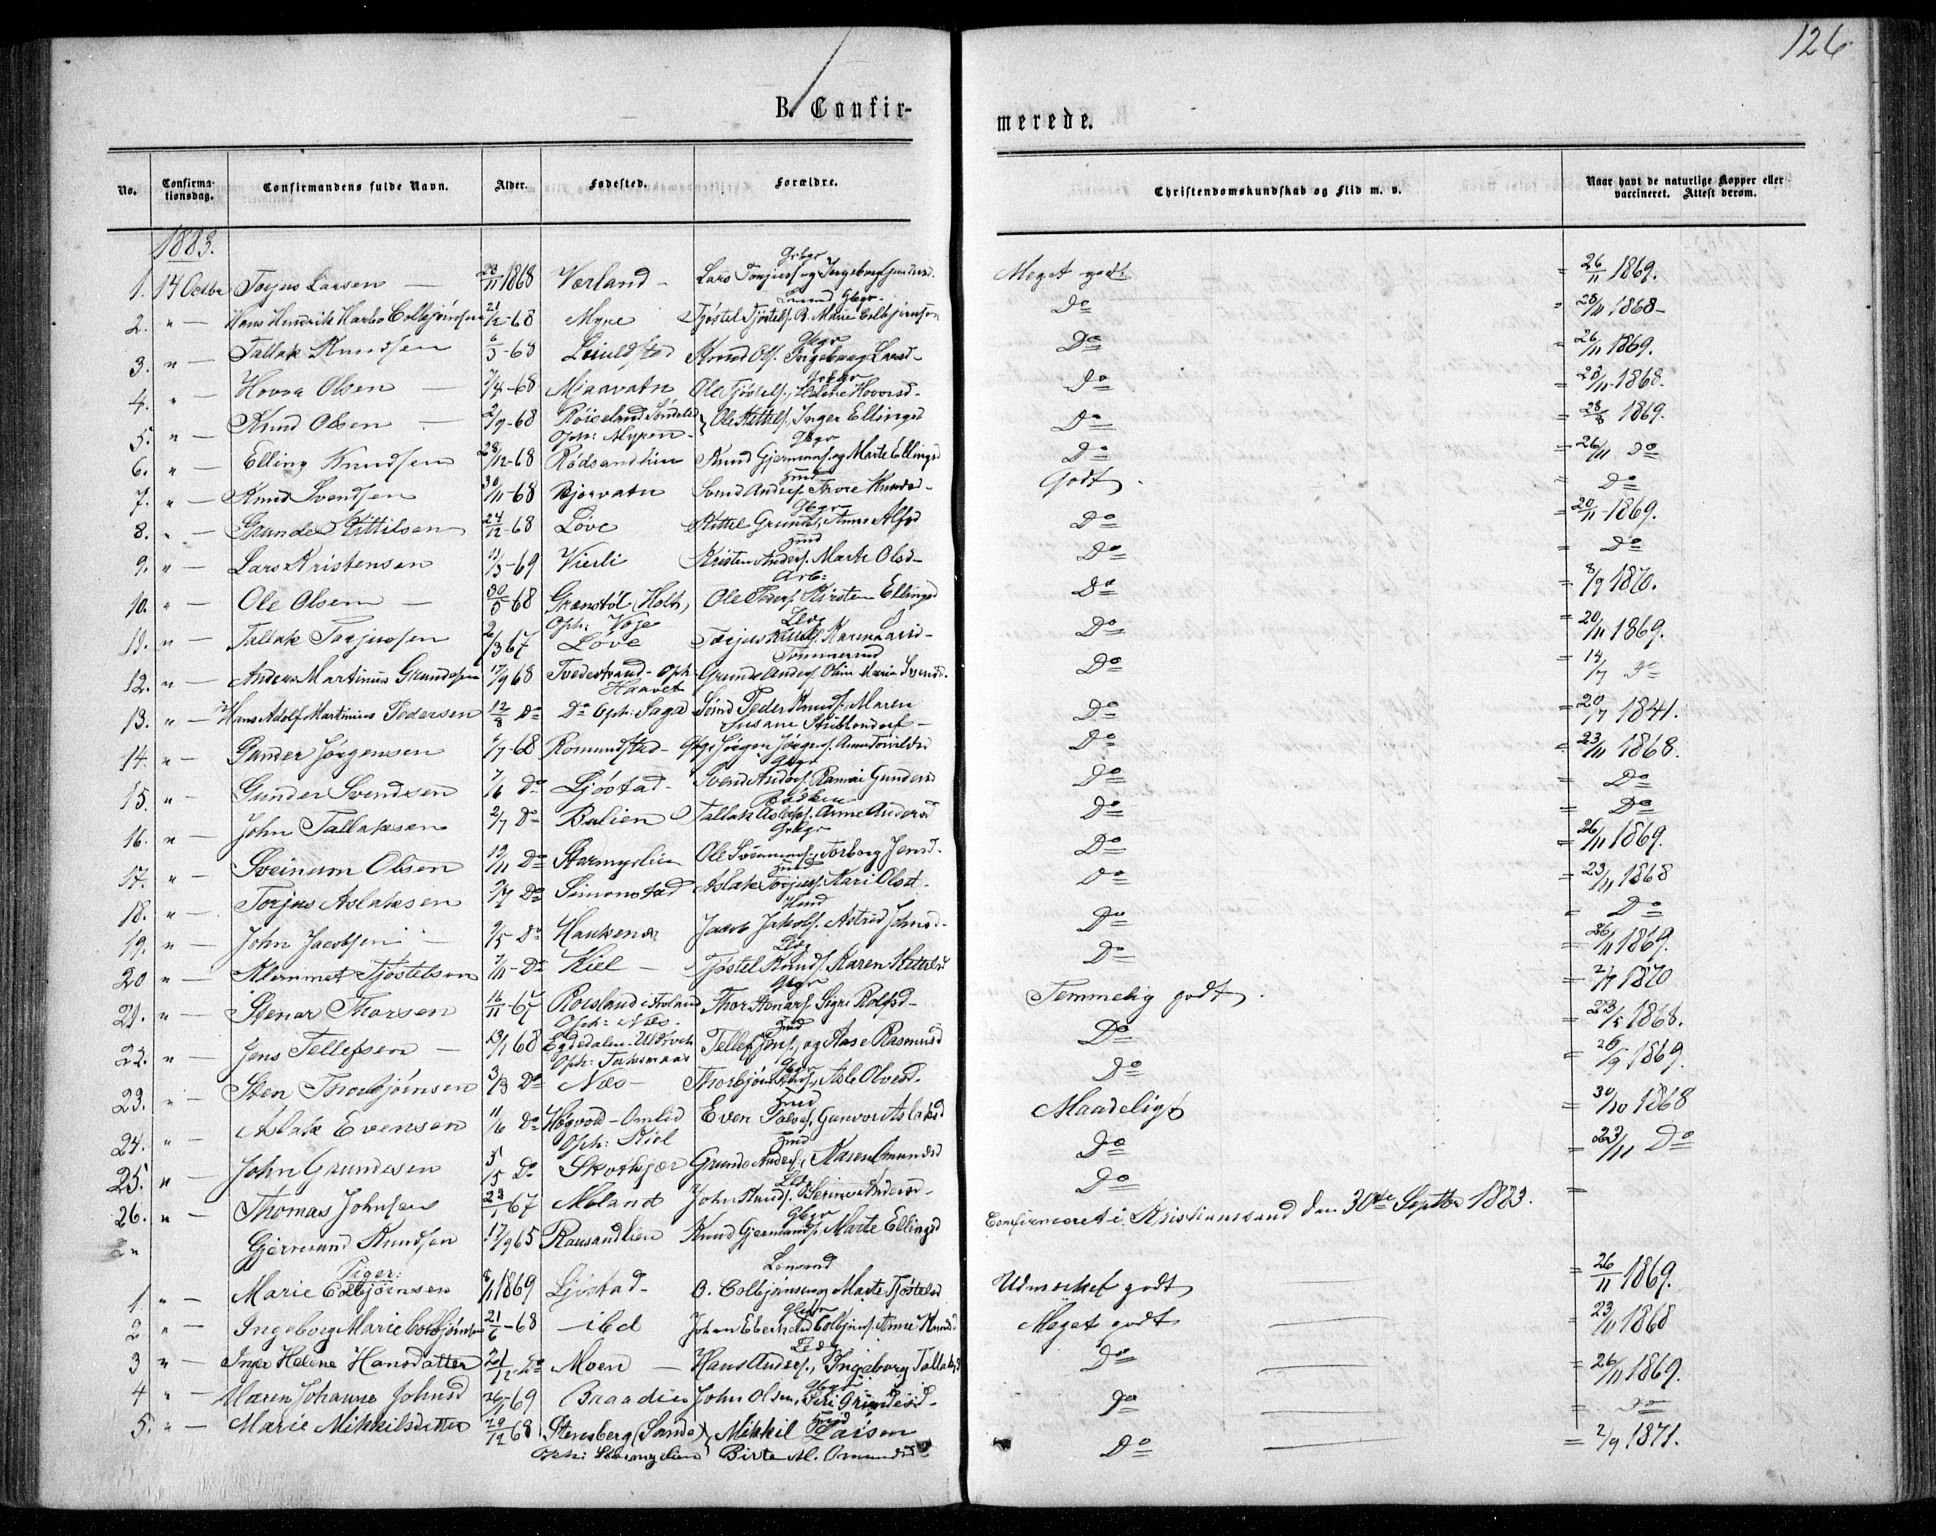 126
B. Confirmerede.
No. Confirmationsdag. Confirmandens fulde Navn. Alder. Fødested. Forældre. Christendomskundskab og Flid m. v. Naar havt de naturlige Kopper eller vaccineret. Attest derom.
1883.
1. 14 Octbr Torjus Larsen 23/11 1868 Værland Gbgr Lars Torjuss. og Ingeborg Gundersd. Meget godt = 26/11 1869.
2. " Hans Hendrik Harbo Colbjörnsen 21/12-68 Myre Lmnd Gbgr. Tjöstel Tjöstels. B. Marie Colbjörnsen Do = 23/11 1868
3. " Tallak Knudsen 6/3-68 Leiulstad Gbgr Knud Ols. Ingeborg Larsd Do = 26/11 1869.
4. " Hovra Olsen 7/4-68 Miaavatn Gbgr Ole Tjöstels., Helene Hovorsd. Do = 23/11-1868.
5. " Knud Olsen 2/9-68 Röiseland Söndeled Oph: Myren Ole Kittels, Inger Ellingsd Do = 28/8 1869.
6. " Elling Knudsen 28/12-68 Rödsandlien Gbgr Knud Gjermunds. og Marte Ellingsd Do = 26/11 Do
7. " Knud Svendsen 30/11-68 Bjorvatn Hmd Svend Anders. Tore Knudsd Godt. = Do
8. " Grunde Kittilsen 24/12-68 Löve Gbgr Kittel Grundes, Anne Alfsd Do = 20/11-1869.
9. " Lars Kristensen 11/3-69 Vierli Hmd Kristen Anders. Marte Olsd Do = Do
10. " Ole Olsen 30/5 68 Grænstöl (Holt), Oph: Voje Arb: Ole Peders. Kirsten Ellingsd Do = 8/9 1870.
11. " Tallak Torjussen 2/3 67 Löve Leir Torjus Knuds. Karen Aasd Do = 20/11 1869.
12. " Anders Martinus Grundesen 17/9 68 Tvedestrand Oph Haavet Tömmermd Grunde Anders. Oline Marie Svends. Do 14/7 Do
13. " Hans Adolf Martinius Pedersen 12/8 Do Do Oph: Saga Smd Peder Knuds. Maren Susane Stiblendorf Do = 20/7 1841.
14. " Gunder Jørgensen 1/7-68 Romundstad Gbgr Jörgen Jörgens. Anne Torvildsd Do = 23/11 1868.
15. " Gunder Svendsen 7/6 Do Ljöstad Gbgr Svend Anders. Ramai Gundersd Do = Do
16. " John Tallaksen 2/7 Do Bulien Bödker Tallak Aslaks. Anne Andersd Do = Do
17. " Sveinum Olsen 12/11 Do Stormyrlien Gbgr Ole Sveinums., Torborg Jensd. Do = 26/11 1869.
18. " Torjus Aslaksen 7/7 Do Simonstad Hmd Aslak Torjuss. Kari Olsd. Do = 23/11 1868
19. " John Jacobsen 9/5 Do Haukenæs Hmd Jacob Jakobs. Astrid Johnsd. Do = Do
20 " Klemmet Tjöstelsen 7/11-Do Kiel Leir Tjöstel Knuds. Karen Do = 26/11 1869.
21. " Stenar Thorsen 16/11-67 Roisland i Aaland Oph: Næs. Gbgr Thor Stenars. Sigre Rolfsd Temmelig godt. = 2/7 1870
22. " Jens Tellefsen 13/1 68 Egdedalen Oph: Taksenaas Hmd Tellef Jens. og Aase Rasmusd Do = 23/5 1868.
23. " Sten Thorbjörnsen 3/3 Do Næs Gbgr Thorbjörn Asle Olvesd. Do = 26/9 1869.
24. " Aslak Evensen 11/6 Do Høgvold Omlid Oph: Kiel Hmd Even Salves. Gunvor Aslaksd Maadeligt = 30/10 1868
25. " John Grundesen 5/5 Do Skotkjær Hmd Grunde Anders., Karen Omundsd Do = 23/11 Do
26. " Thomas Johnsen 23/1-67 Aaland Leir John Knuds. Berine Andersd. Do =
Gjermund Knudsen 17/9 65 Rausandlien Gbgr Knud Gjermunds. Marte Ellingsd Confirmeret i Kristianssand den 30te Septbr 1883.
Piger:
1. " Marie Colbjørnsen 8/1 1869 Ljöstad Lensmd O. Colbjörnsen og Marte Tjöstelsd Udmærket godt = 26/11 1869.
2 " Ingeborg Marie Colbjörnsen 21/6-68 ibd Gbgr Johan Ebenhard Colbjörns. Anne Knudsd Meget godt = 23/11 1868
3 " Inger Helene Hansdatter 21/12 Do Moen Leir Hans Anders., Ingeborg Tallaksd Do = 26/11 1869.
4 " Maren Johanne Johnsd 26/1-69 Baaslien Gbgr John Olsen, Siri Grundesd. Do = Do
5. " Marie Mikkilsdatter 29/12 68 Stensberg (Sande), Oph: Stormyrlien Hmd Mikkil Larsen Birte M. Omundsd Do = 2/9 1871.